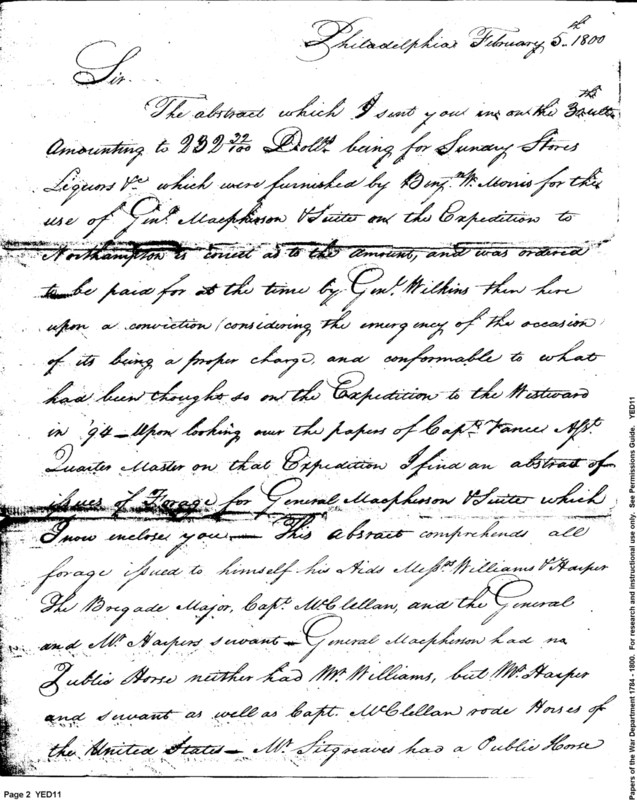 Philadelphia February 5th 1800
Sir.
The abstract which I sent you on the 30th ulto
Amounting to 232 32/100 Dolls. being for Sundry Stores
Liquors &c which were furnished by Benjn. W. Morris for the
use of Genl. Macpherson & Suite on the Expedition to
Northampton is correct as to the amount, and was ordered
to be paid for at the time by Genl. Wilkins then here
upon a conviction (considering the emergency of the occasion)
of its being a proper charge, and conformable to what
had been thought so on the Expedition to the Westward
in '94 – Upon looking over the papers of Capt. Vance Asst.
Quarter Master on that Expedition I find an abstract of
issues of Forage for General Macpherson & Suite which
I now enclose you – This Abstract comprehends all
forage issued to himself his Aids Messrs Williams & Harper
The Brigade Major, Capt. McClellan, and the General
and Mr. Harpers servant – General Macpherson had no
Public Horse neither had Mr. Williams, but Mr. Harper
and servant as well as Capt. McClellan rode Horses of
the United States – Mr. Sitgreaves had a Public Horse
Page 2 YED11
Papers of the War Department 1784 - 1800. For research and instructional use only. See Permissions Guide. YED11